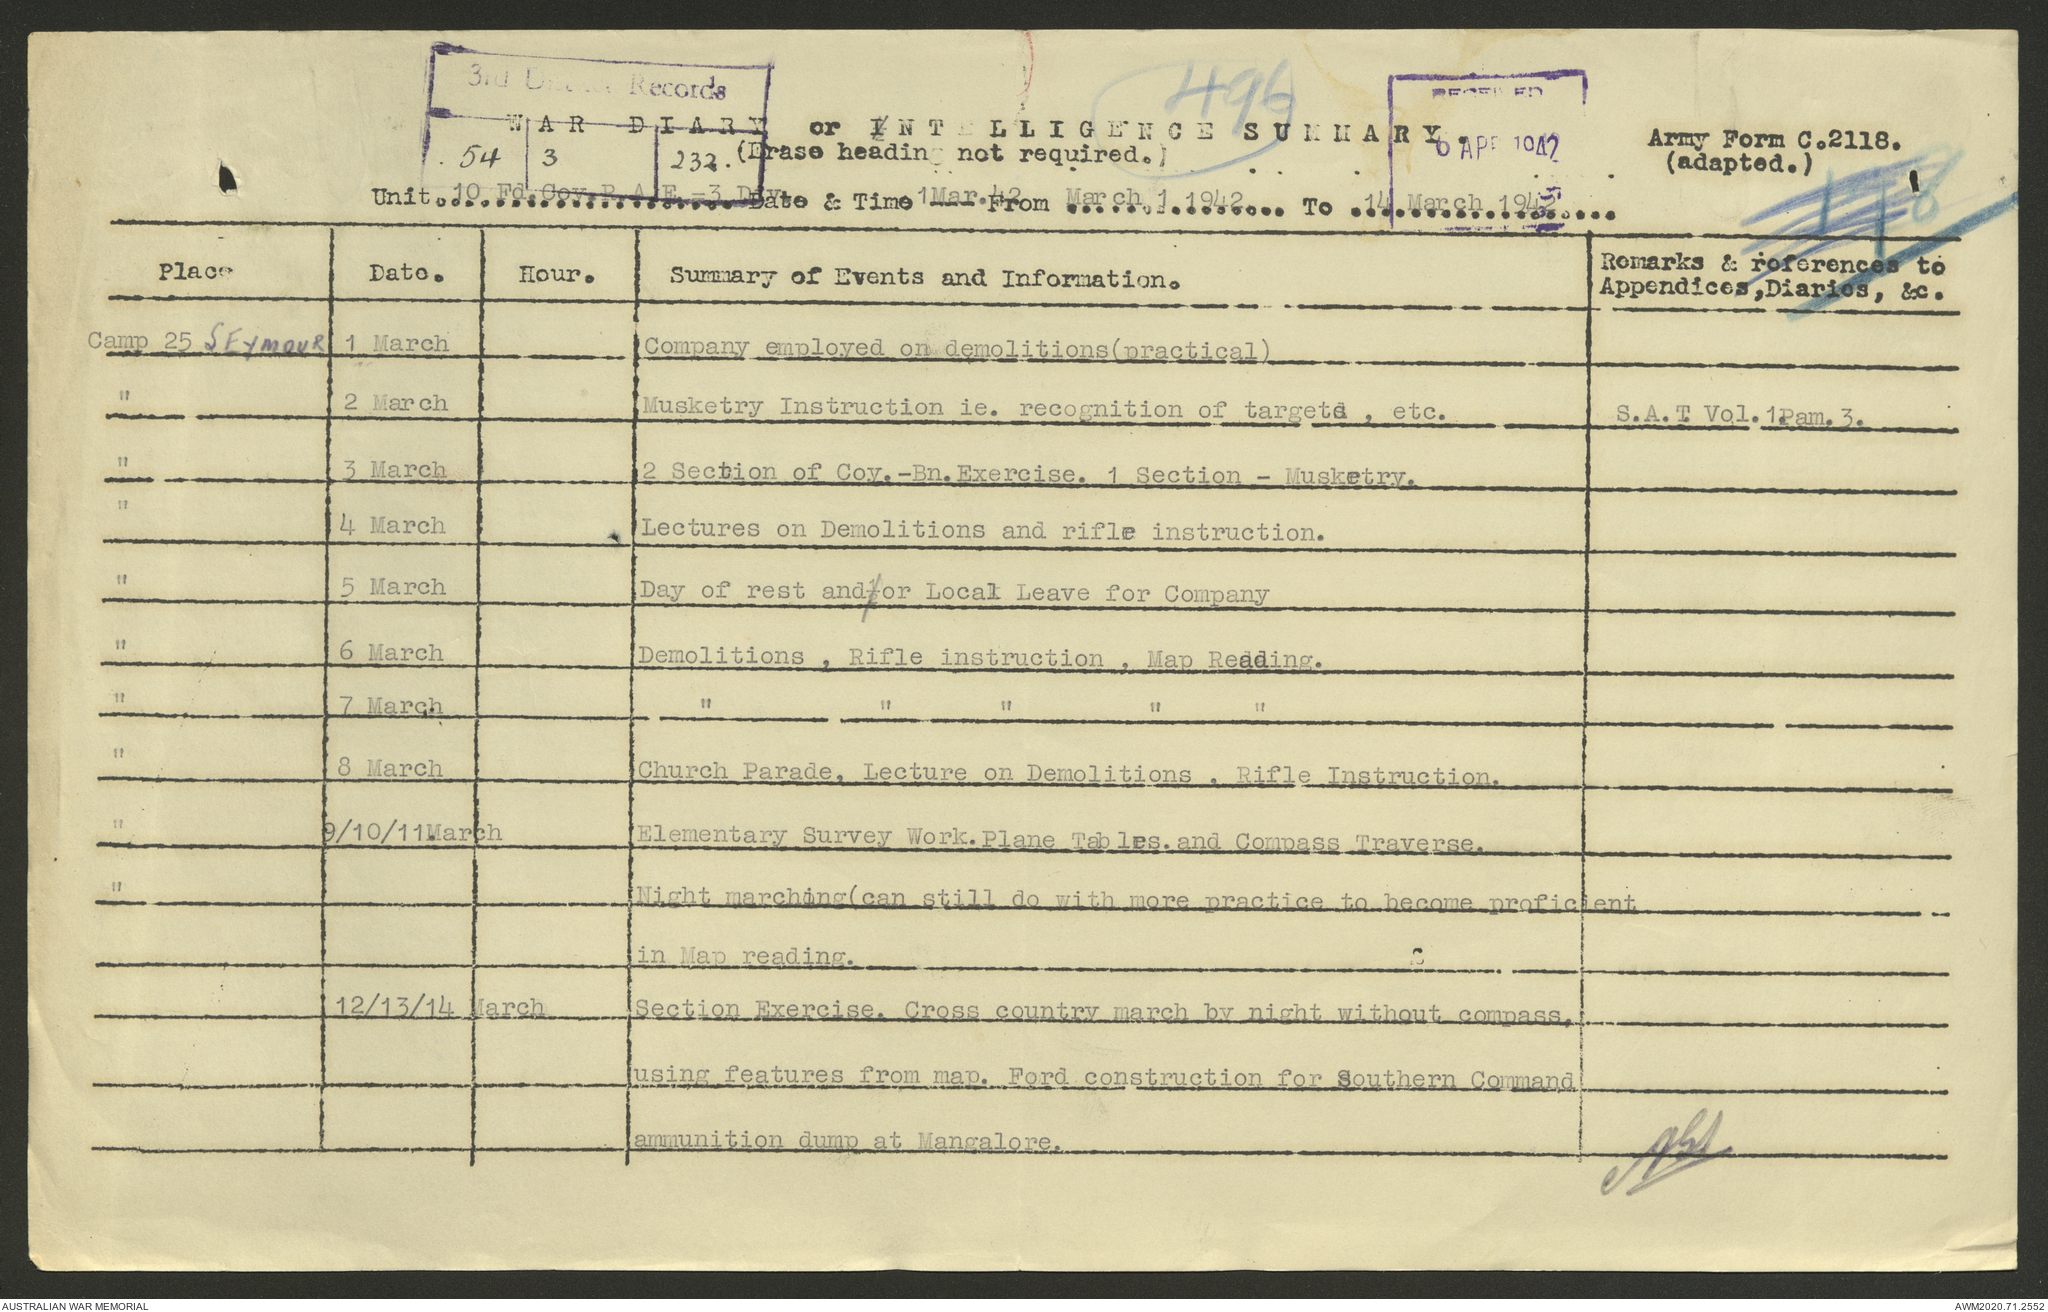 3rd District Records
54 3 232.
496
RECEIVED
6 APR 1942
118
WAR DIARY or INTELLIGENCE SUMMARY.
(Erase heading not required.)
Army Form C.2118.
(adapted.)
Unit. 10 Fd. Coy. R.A.E. -3 Div. Date & Time 1 Mar. 42 From March 1 1942 To 14 March 1942
Place Date. Hour. Summary of Events and Information. Remarks & references to
Appendices, Diaries, &c.
Camp 25 SEYMOUR 1 March Company employed on demolitions(practical)
" 2 March Musketry Instruction ie. recognition of targets , etc. S.A.T. Vol. 1. Pam. 3.
" 3 March 2 Section of Coy.-Bn. Exercise. 1 Section - Musketry.
" 4 March Lectures on Demolitions and rifle instruction.
" 5 March Day of rest and/or Local Leave for Company
" 6 March Demolitions , Rifle instruction , Map Reading.
" 7 March " " " " "
" 8 March Church Parade, Lecture on Demolitions , Rifle Instruction.
" 9/10/11 March Elementary Survey Work. Plane Tables. and Compass Traverse.
" Night marching(can still do with more practice to become proficient
in Map reading.
12/13/14 March Section Exercise. Cross country march by night without compass,
using features from map. Ford construction for Southern Command
ammunition dump at Mangalore.
AUSTRALIAN WAR MEMORIAL AWM2020.71.2552